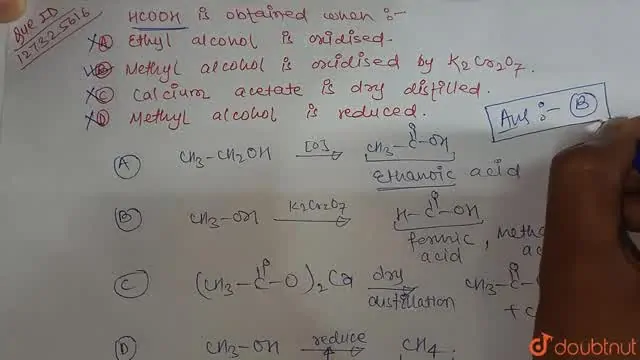 Que ID
127325616
HCOOH is obtained when :-
A Ethyl alcohol is oxidised.
B Methyl alcohol is oxidised by K2Cr2O7.
C Calcium acetate is dry distilled.
D Methyl alcohol is reduced.
Ans :- B
A CH3-CH2OH [O] CH3-C-OH
O
Ethanoic acid
B CH3-OH K2Cr2O7 H-C-OH
O
formic acid, Metha
C (CH3-C-O)2Ca dry distillation CH3-C
O O
+ C
D CH3-OH reduce CH4.
doubtnut